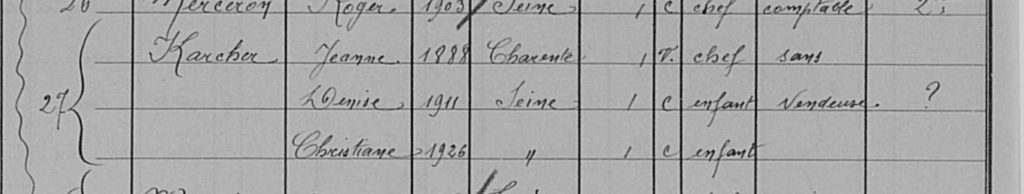 26 Merceron Roger. 1903 Seine 1 c chef comptable
Karcher Jeanne. 1888 Charente 1 V. chef sans
27 Denise 1911 Seine 1 c enfant Vendeuse. ?
Christiane 1926 " 1 c enfant